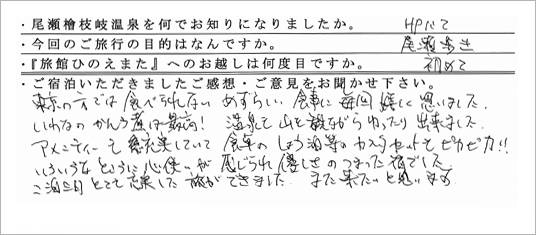 ・尾瀬檜枝岐温泉を何でお知りになりましたか。 HPにて
・今回のご旅行の目的はなんですか。 尾瀬歩き
・『旅館ひのえまた』へのお越しは何度目ですか。 初めて
・ご宿泊いただきましたご感想・ご意見をお聞かせ下さい。
東京の方では食べられない めずらしい 食事に 毎回 嬉しく思いました。
いわなのかんろ煮は最高! 温泉も山を観ながらゆったり出来ました。
アメニティーも充実していて 食卓の しょう油等の カスタセットも ピカピカ!!
いろいろなところに心使いが 感じられ 優しさの つまった宿でした。
二泊三日 とても充実した 旅ができました。 また来たいと思います